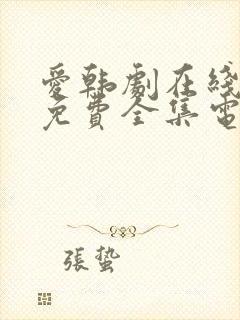 愛韩劇在綫
免費全集電
張蟄